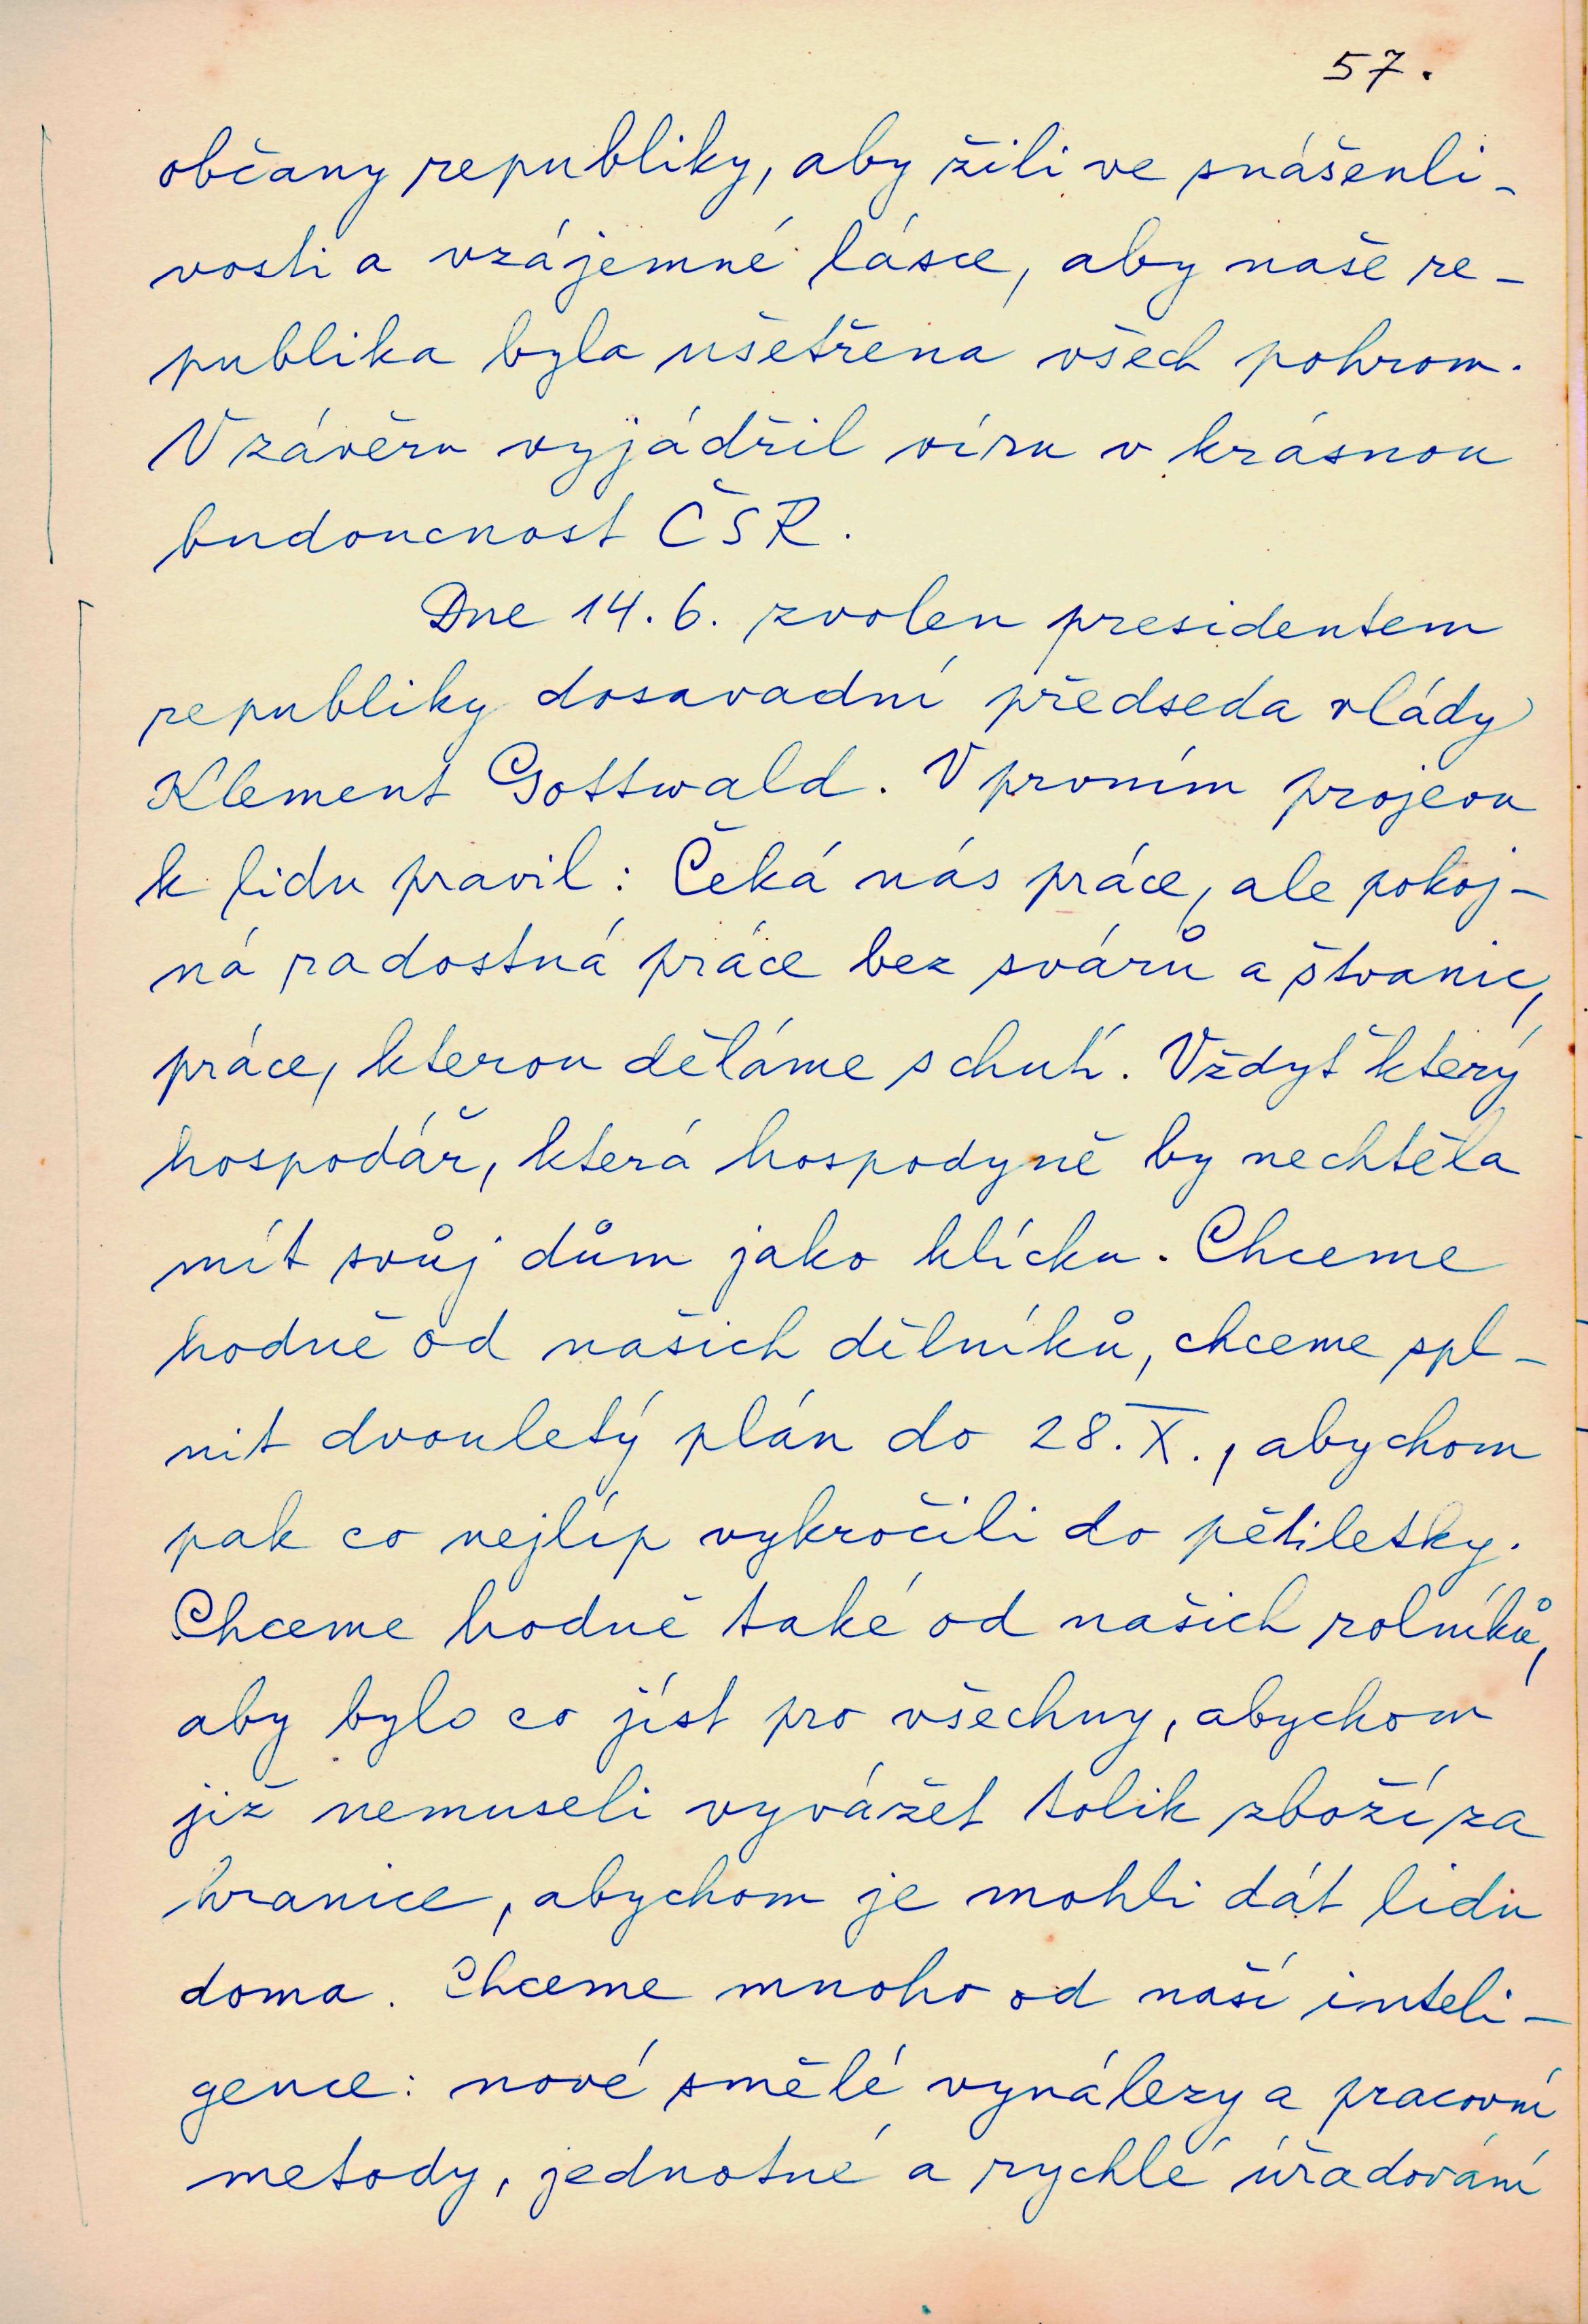 57.
občany republiky, aby žili ve snášenli-
vosti a vzájemné lásce, aby naše re-
publika byla ušetřena všech pohrom.
V závěru vyjádřil víru v krásnou
budoucnost ČSR.
Dne 14. 6. zvolen presidentem
republiky dosavadní předseda vlády
Klement Gottwald. V prvním projevu
k lidu pravil: Čeká nás práce, ale pokoj-
ná radostná práce bez svárů a štvanic,
práce, kterou děláme s chutí. Vždyť který
hospodář, která hospodyně by nechtěla
mít svůj dům jako klícku. Chceme
hodně od našich dělníků, chceme spl-
nit dvouletý plán do 28. X., abychom
pak co nejlíp vykročili do pětiletky.
Chceme hodně také od našich rolníků,
aby bylo co jíst pro všechny, abychom
již nemuseli vyvážet tolik zboží za
hranice, abychom je mohli dát lidu
doma. Chceme mnoho od naší inteli-
gence: nové smělé vynálezy a pracovní
metody, jednotné a rychlé úřadování